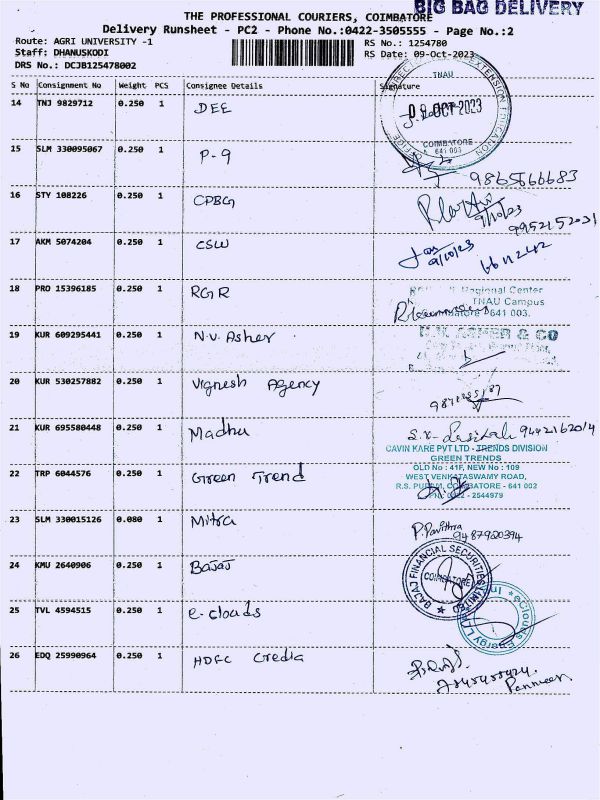 BIG BAG DELIVERY
THE PROFESSIONAL COURIERS, COIMBATORE
Delivery Runsheet - PC2 - Phone No.:0422-3505555 - Page No.:2
Route: AGRI UNIVERSITY -1
RS No.: 1254780
Staff: DHANUSKODI
RS Date: 09-Oct-2023
DRS No.: DCJB125478002
S No Consignment No Weight PCS Consignee Details Signature
TNAU
14 TNJ 9829712 0.250 1 DEE
OCT 2023
COIMBATORE
641 003
15 SLM 330095067 0.250 1 P-9
16 STY 108226 0.250 1 CPBG
9/10/23
9952152021
17 AKM 5074204 0.250 1 CSW
9/10/23 6611242
18 PRO 15396185 0.250 1 RGR
Regional Center
TNAU Campus
641 003.
19 KUR 609295441 0.250 1 N.V. Asher
N.V. ASHER & CO
20 KUR 530257882 0.250 1 Vignesh Agency
21 KUR 695580448 0.250 1 Madhu
9442162014
CAVIN KARE PVT LTD - TRENDS DIVISION
GREEN TRENDS
22 TRP 6044576 0.250 1 Green Trend
OLD No : 41F, NEW No : 109
WEST VENKATASWAMY ROAD,
R.S. PURAM, COIMBATORE - 641 002
PH: 0422 - 2544979
23 SLM 330015126 0.080 1 Mitra
P. Pavithra
9487920394
24 KMU 2640906 0.250 1 Bajaj
BAJAJ FINANCIAL SECURITIES LIMITED
COIMBATORE
25 TVL 4594515 0.250 1 e-clouds
eClouds Energy
26 EDQ 25990964 0.250 1 HDFC Credia